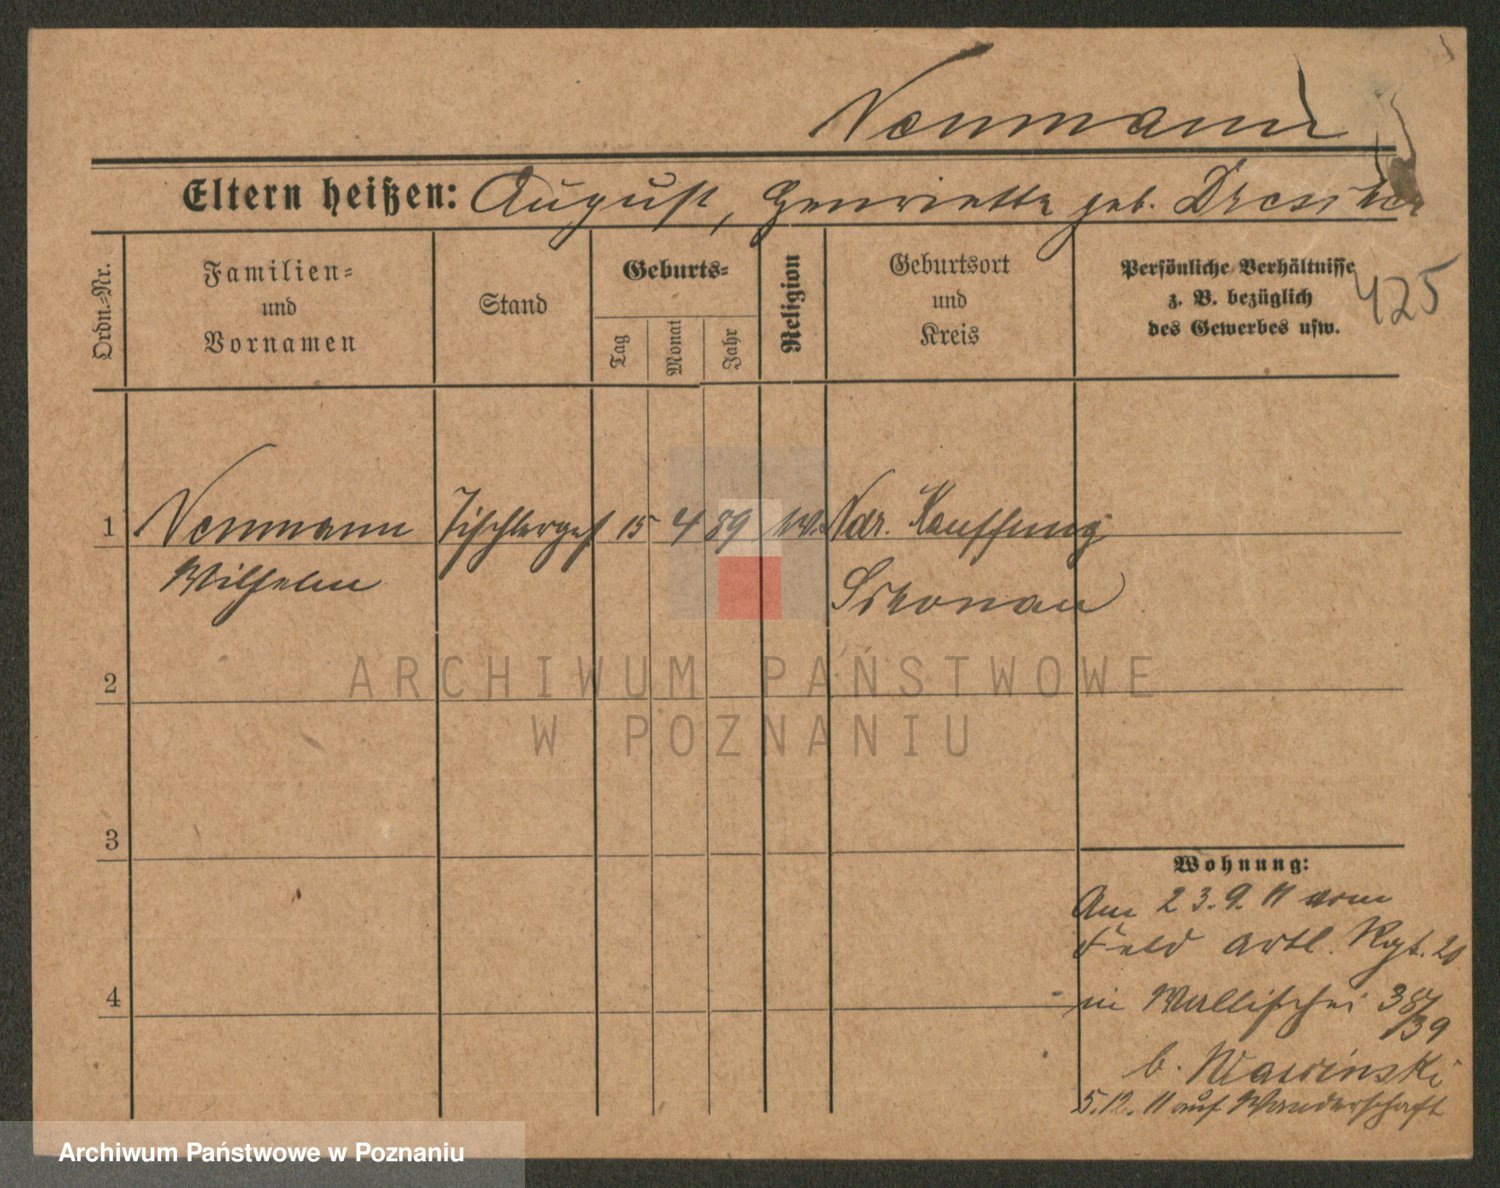 Neumann
Eltern heißen: August, Henriette geb.
425
Ordn.-Nr.
Familien=
und
Vornamen
Stand
Geburts=
Tag
Monat
Jahr
Religion
Geburtsort
und
Kreis
Persönliche Verhältnisse
z. B. bezüglich
des Gewerbes usw.
1 Neumann Tischlerges 15 4 89 Ndr. Kauffung
Wilhelm Schönau
2
3
4
Wohnung:
Am 23.9.11 vom
Feld artl. Rgt. 20
in Wallischei 38/39
b.
5.12.11 auf Wanderschaft
ARCHIWUM PAŃSTWOWE
W POZNANIU
Archiwum Państwowe w Poznaniu